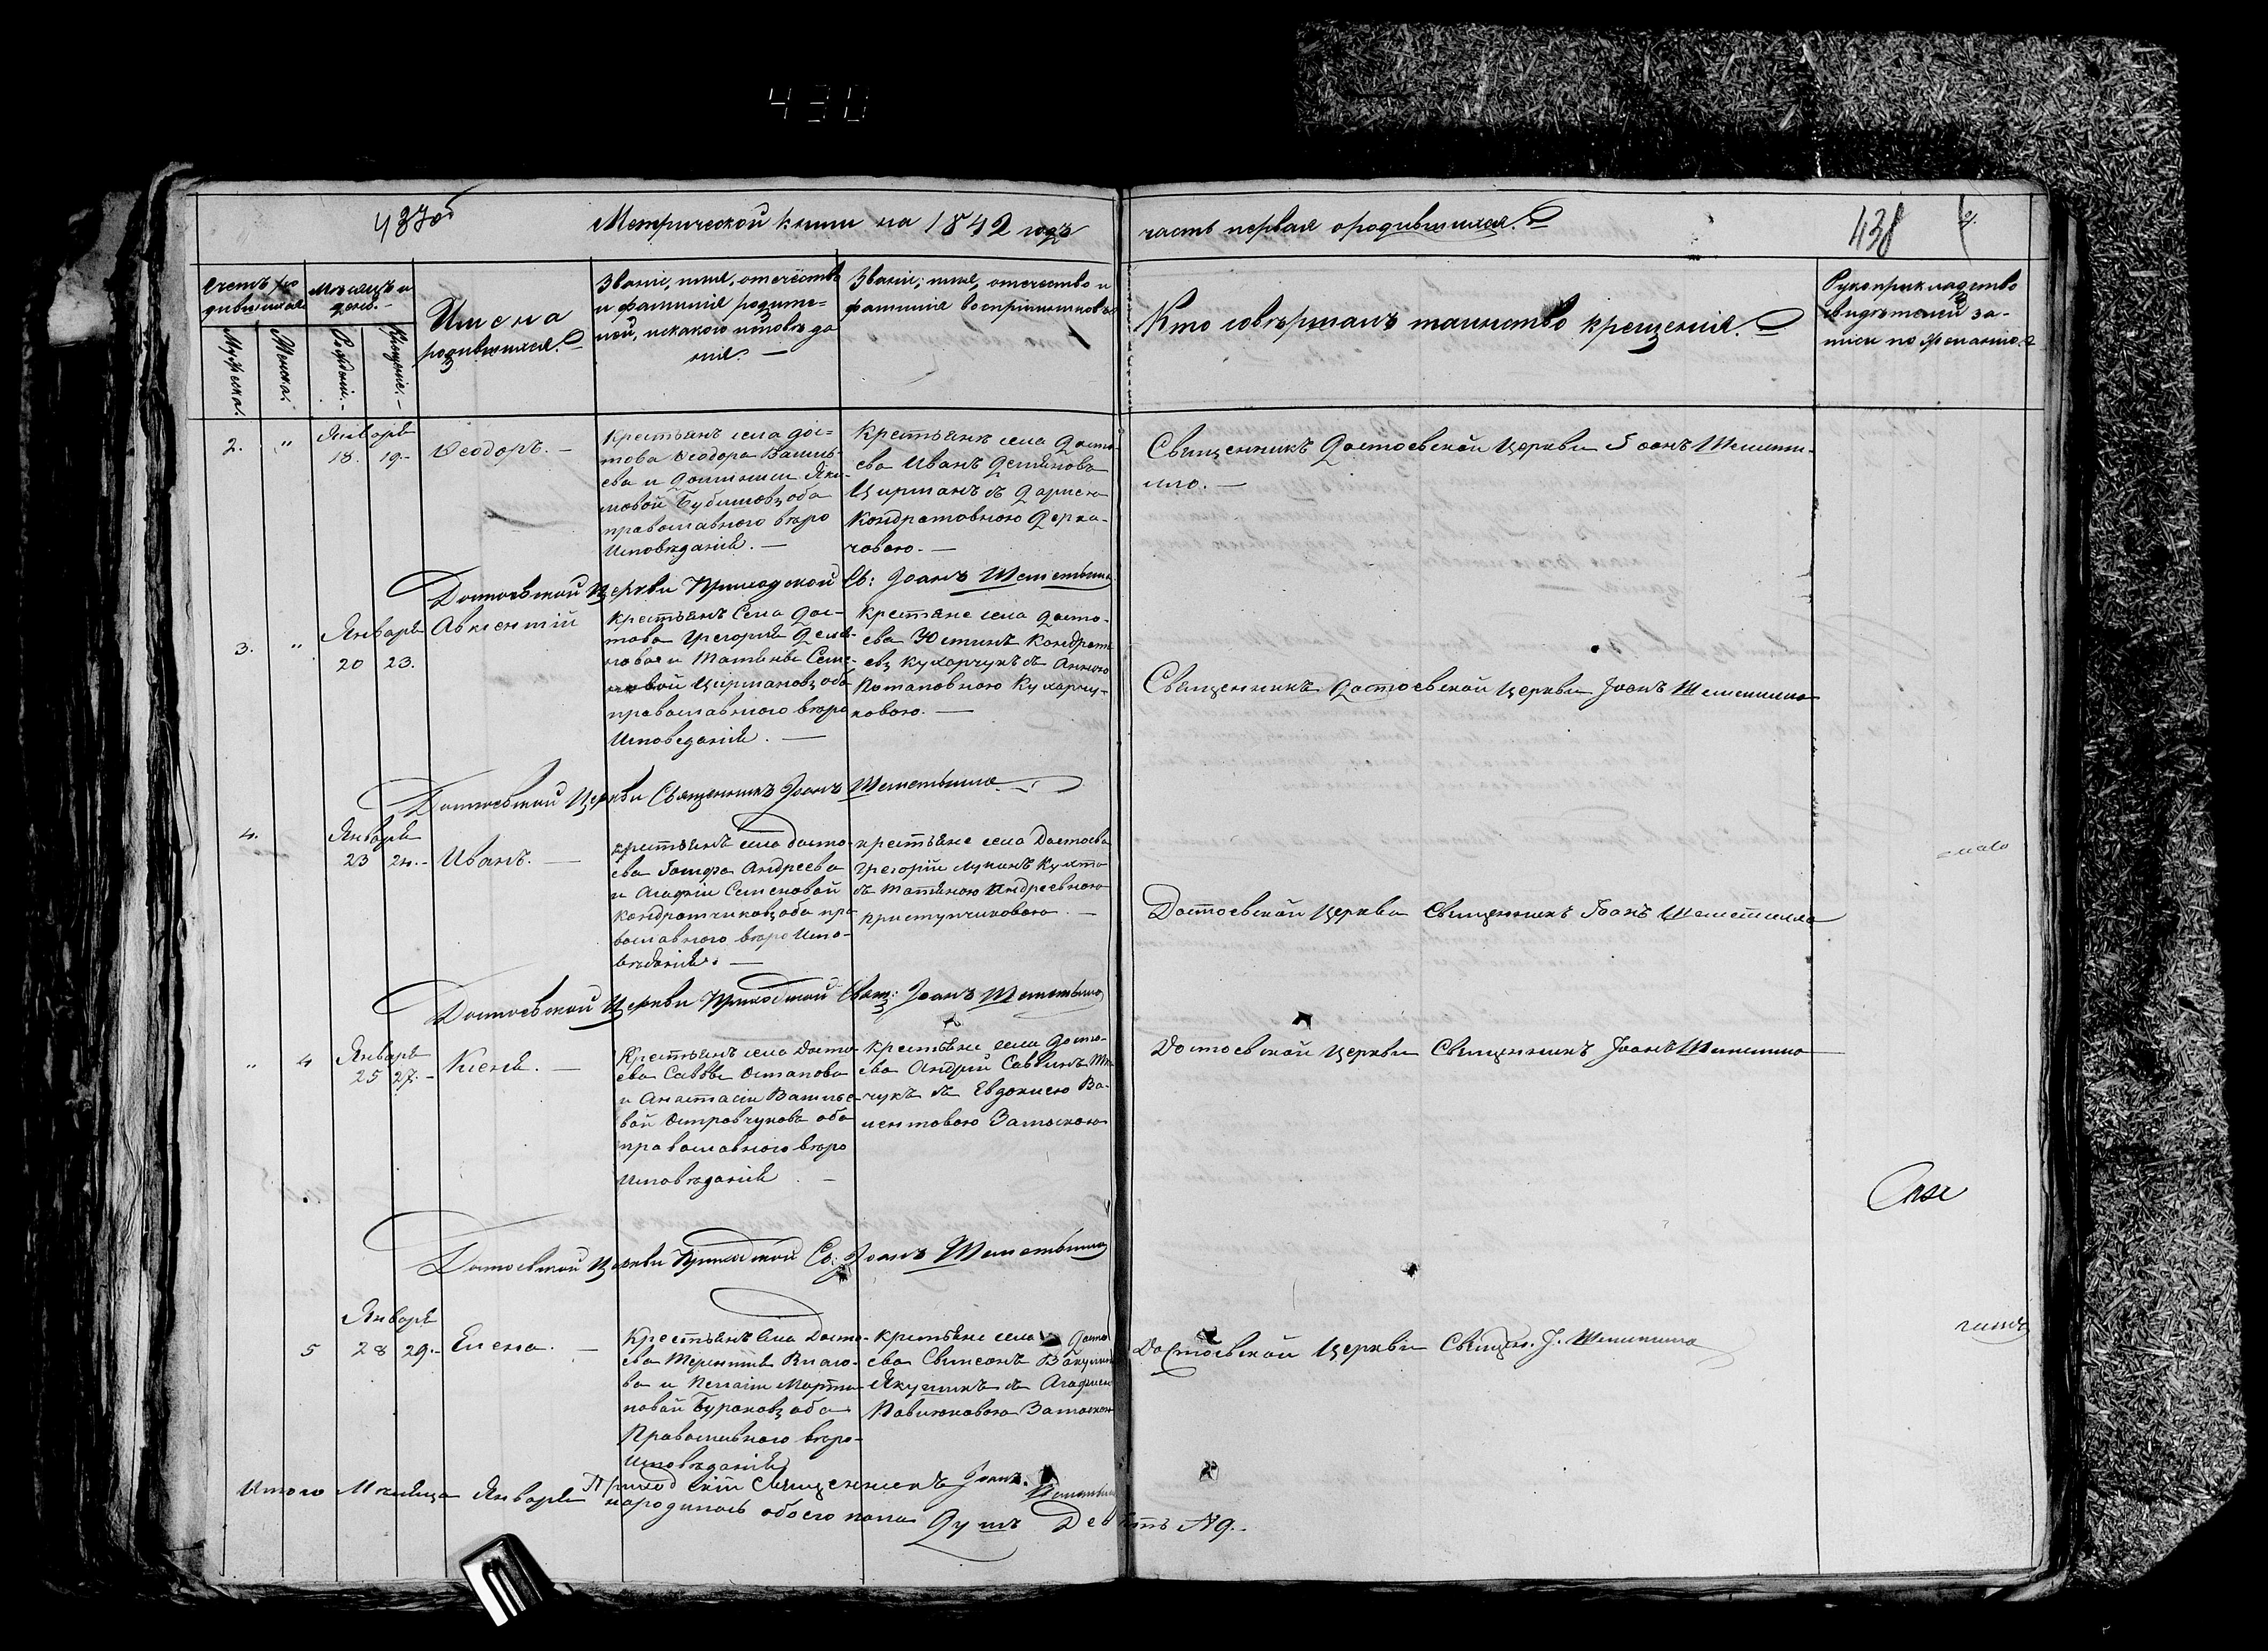 430
437об
Метрической книги на 1842 годъ
часть первая о родившихся.
438
Счетъ ро
дившихся
Мѣсяцъ и
день.
Мужеска.
Женска.
Рожденія.
Крещенія.
Имена
родившихся.
Званіе, имя, отечество
и фамилія родите=
лей, и какого исповѣда
нія.
Званіе, имя, отечество и
фамилія воспріемниковъ
Кто совершалъ таинство крещенія.
Рукоприкладство
свидѣтелей за-
писи по желанію
2. " Январь
18. 19.
Ѳеодоръ.
Крестьянъ села Дос=
тоева Ѳеодора Василь
ева и Домникіи Яки-
мовой обо
православнаго вѣро
Исповѣданія.
Крестьяне села Досто
ева Иванъ Демяновъ
Цирманъ съ Дарією
Кондратовною Дерка-
човою.
Священникъ Достоевской Церкви Іоаннъ Шеметил-
ло.
Достоевской Церкви Приходской Св: Іоаннъ Шеметылло
3. " Январь
20 23.
Авксентій
Крестьянъ Села Дос-
тоева Григорія Демя-
новая и Татьяны Семе-
новой Цирмановъ обо
православнаго вѣро
Исповеданія.
Крестяне села Досто-
ева Юстинъ Кондрать
евъ Кухарчукъ съ Анною
Потаповною Кухарчу-
ковою.
Священникъ Достоевской Церкви Іоаннъ Шеметилло
Достоевской Церкви Священникъ Іоаннъ Шеметылло
4. Январь
23 24.
Иванъ.
Крестьянъ села Досто-
ева Іосифа Андреева
и Агафіи Семеновой
Кондратчиковъ обо пра
вославнаго вѣро Испо-
вѣданія.
Крестьяне села Достоева
Григорій Лукинъ Кухто
съ Татяною Андреевною
Приступчиковою.
Достоевской Церкви Священникъ Іоаннъ Шеметилло
Достоевской Церкви Приходской Свящ: Іоаннъ Шеметылло
" 4 Январь
25 27.
Ксенія.
Крестьянъ села Досто-
ева Саввы Остапова
и Анастасіи Василье
вой Островчуковъ обо
православнаго вѣро
Исповѣданія
Крестьяне села Досто-
ева Андрей Саввинъ
чукъ съ Евдокією Ва-
лентовою Затоскою
Достоевской Церкви Священникъ Іоаннъ Шеметилло
Достоевской Церкви Приходской Св: Іоаннъ Шеметылло
5 Январь
28 29.
Елена.
Крестьянъ села Досто-
ева Терентія Власо-
ва и Пелагіи Марти-
новой Бураковъ обо
Православнаго вѣро-
Исповѣданія
Крестьяне села Досто
ева Свимеонъ
Якушикъ съ Агафією
Павлюковою Затоскою
Достоевской Церкви Священ. І. Шеметилло
Приходскій Священникъ Іоаннъ Шеметылло
Итого Мѣсяца Января народилось обоего пола Душъ Девять №9.